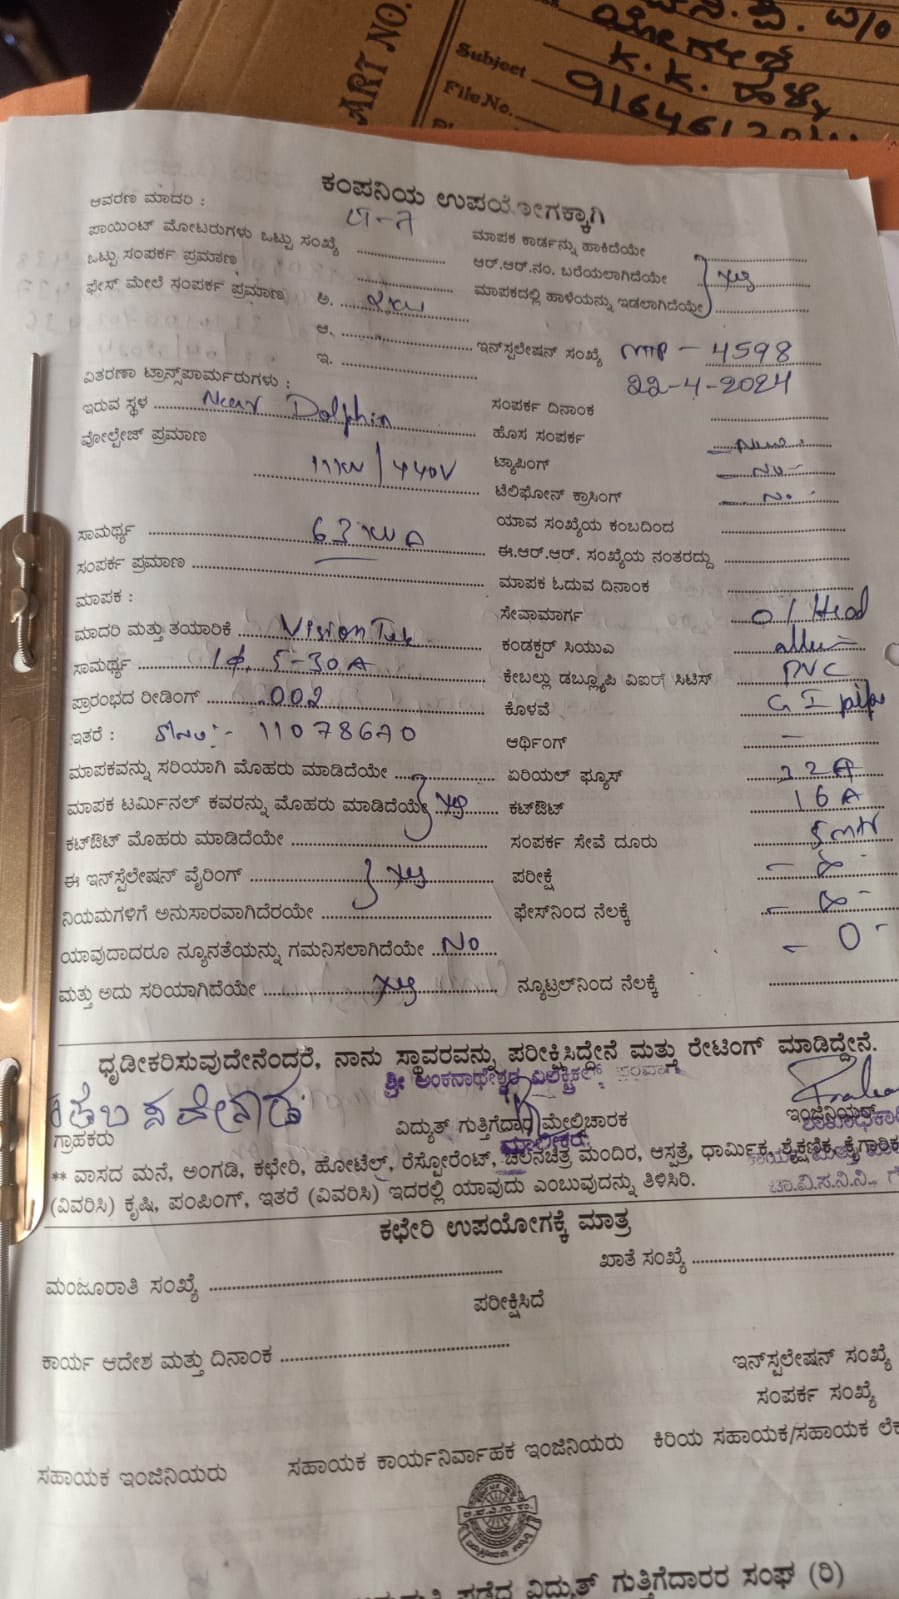 ART NO.
ಯೋಗೇಶ
Subject
ಕೆ. ಕೆ. ಹಳ್ಳಿ
File No.
ಕಂಪನಿಯ ಉಪಯೋಗಕ್ಕಾಗಿ
ಆವರಣ ಮಾದರಿ :
ಪಾಯಿಂಟ್ ಮೋಟರುಗಳು ಒಟ್ಟು ಸಂಖ್ಯೆ ಮಾಪಕ ಕಾರ್ಡನ್ನು ಹಾಕಿದೆಯೇ
ಒಟ್ಟು ಸಂಪರ್ಕ ಪ್ರಮಾಣ ಆರ್.ಆರ್.ನಂ. ಬರೆಯಲಾಗಿದೆಯೇ
ಫೇಸ್ ಮೇಲೆ ಸಂಪರ್ಕ ಪ್ರಮಾಣ ಅ. ಮಾಪಕದಲ್ಲಿ ಹಾಳೆಯನ್ನು ಇಡಲಾಗಿದೆಯೇ
ಆ. ಇನ್‌ಸ್ಟಲೇಷನ್ ಸಂಖ್ಯೆ MTP - 4598
ಇ. 22-4-2024
ವಿತರಣಾ ಟ್ರಾನ್ಸ್‌ಪಾರ್ಮರುಗಳು :
ಇರುವ ಸ್ಥಳ Near Dolphin ಸಂಪರ್ಕ ದಿನಾಂಕ
ವೋಲ್ಟೇಜ್ ಪ್ರಮಾಣ 11KV/440V ಹೊಸ ಸಂಪರ್ಕ
ಟ್ಯಾಪಿಂಗ್ No
ಟೆಲಿಫೋನ್ ಕ್ರಾಸಿಂಗ್ No
ಸಾಮರ್ಥ್ಯ 63 KVA ಯಾವ ಸಂಖ್ಯೆಯ ಕಂಬದಿಂದ
ಸಂಪರ್ಕ ಪ್ರಮಾಣ ಈ.ಆರ್.ಆರ್. ಸಂಖ್ಯೆಯ ನಂತರದ್ದು
ಮಾಪಕ : ಮಾಪಕ ಓದುವ ದಿನಾಂಕ
ಮಾದರಿ ಮತ್ತು ತಯಾರಿಕೆ Vision Tek ಸೇವಾಮಾರ್ಗ O/Head
ಸಾಮರ್ಥ್ಯ 1Φ, 5-30A ಕಂಡಕ್ಟರ್ ಸಿಯುಎ
ಪ್ರಾರಂಭದ ರೀಡಿಂಗ್ 002 ಕೇಬಲ್ಲು ಡಬ್ಲ್ಯೂಪಿ ವಿಐಆರ್ ಸಿಟಿಸ್ PVC
ಇತರೆ : Sl No:- 11078670 ಕೊಳವೆ GI pipe
ಆರ್ಥಿಂಗ್ -
ಮಾಪಕವನ್ನು ಸರಿಯಾಗಿ ಮೊಹರು ಮಾಡಿದೆಯೇ ಏರಿಯಲ್ ಫ್ಯೂಸ್ 32A
ಮಾಪಕ ಟರ್ಮಿನಲ್ ಕವರನ್ನು ಮೊಹರು ಮಾಡಿದೆಯೇ yes ಕಟ್‌ಔಟ್ 16 A
ಕಟ್‌ಔಟ್ ಮೊಹರು ಮಾಡಿದೆಯೇ ಸಂಪರ್ಕ ಸೇವೆ ದೂರು
ಈ ಇನ್‌ಸ್ಟೆಲೇಷನ್ ವೈರಿಂಗ್ yes ಪರೀಕ್ಷೆ
ನಿಯಮಗಳಿಗೆ ಅನುಸಾರವಾಗಿದೆರಯೇ ಫೇಸ್‌ನಿಂದ ನೆಲಕ್ಕೆ
ಯಾವುದಾದರೂ ನ್ಯೂನತೆಯನ್ನು ಗಮನಿಸಲಾಗಿದೆಯೇ No - 0 -
ಮತ್ತು ಅದು ಸರಿಯಾಗಿದೆಯೇ yes ನ್ಯೂಟ್ರಲ್‌ನಿಂದ ನೆಲಕ್ಕೆ
ಧೃಡೀಕರಿಸುವುದೇನೆಂದರೆ, ನಾನು ಸ್ಥಾವರವನ್ನು ಪರೀಕ್ಷಿಸಿದ್ದೇನೆ ಮತ್ತು ರೇಟಿಂಗ್ ಮಾಡಿದ್ದೇನೆ.
ಶ್ರೀ ಅಂಕನಾಥೇಶ್ವರ ಎಲೆಕ್ಟ್ರಿಕಲ್
ಗ್ರಾಹಕರು ವಿದ್ಯುತ್ ಗುತ್ತಿಗೆದಾರ/ಮೇಲ್ವಿಚಾರಕ ಇಂಜಿನಿಯರ್
ಮಾಲೀಕರು
** ವಾಸದ ಮನೆ, ಅಂಗಡಿ, ಕಛೇರಿ, ಹೋಟೆಲ್, ರೆಸ್ಟೋರೆಂಟ್, ಚಲನಚಿತ್ರ ಮಂದಿರ, ಆಸ್ಪತ್ರೆ, ಧಾರ್ಮಿಕ, ಶೈಕ್ಷಣಿಕ, ಕೈಗಾರಿಕ
(ವಿವರಿಸಿ) ಕೃಷಿ, ಪಂಪಿಂಗ್, ಇತರೆ (ವಿವರಿಸಿ) ಇದರಲ್ಲಿ ಯಾವುದು ಎಂಬುವುದನ್ನು ತಿಳಿಸಿರಿ.
ಚಾ.ವಿ.ಸ.ನಿ.ನಿ.
ಕಛೇರಿ ಉಪಯೋಗಕ್ಕೆ ಮಾತ್ರ
ಮಂಜೂರಾತಿ ಸಂಖ್ಯೆ ಖಾತೆ ಸಂಖ್ಯೆ
ಪರೀಕ್ಷಿಸಿದೆ
ಕಾರ್ಯ ಆದೇಶ ಮತ್ತು ದಿನಾಂಕ
ಇನ್‌ಸ್ಟಲೇಷನ್ ಸಂಖ್ಯೆ
ಸಂಪರ್ಕ ಸಂಖ್ಯೆ
ಸಹಾಯಕ ಇಂಜಿನಿಯರು ಸಹಾಯಕ ಕಾರ್ಯನಿರ್ವಾಹಕ ಇಂಜಿನಿಯರು ಕಿರಿಯ ಸಹಾಯಕ/ಸಹಾಯಕ ಲೆಕ
ವಿದ್ಯುತ್ ಗುತ್ತಿಗೆದಾರರ ಸಂಘ (ರಿ)